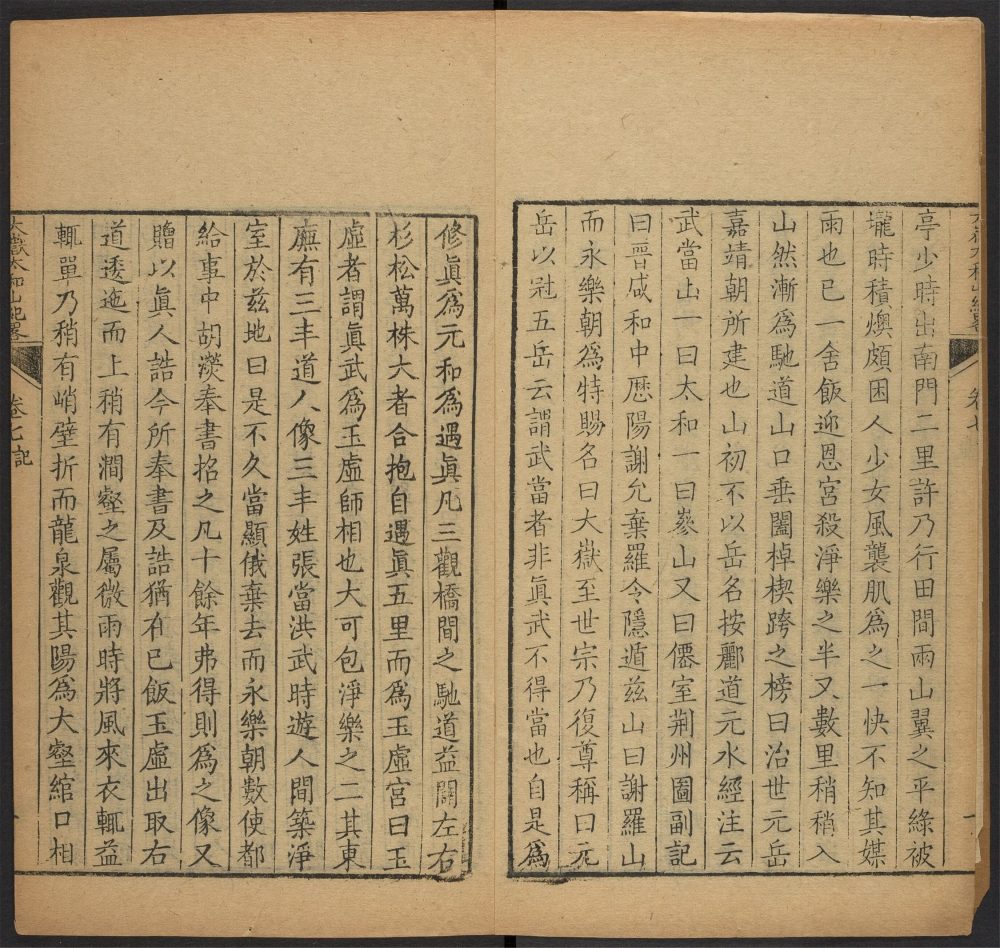 亭少時出南門二里許乃行田間兩山翼之平綠被
壠時積燠頗困人少女風襲肌爲之一快不知其媒
雨也已一舍飯迎恩宮殺淨樂之半又數里稍稍入
山然漸爲馳道山口垂闔棹楔跨之榜曰治世元岳
嘉靖朝所建也山初不以岳名按酈道元水經注云
武當山一曰太和一曰嵾山又曰僊室荆州圖副記
曰晉咸和中歷陽謝允棄羅令隱遁兹山曰謝羅山
而永樂朝爲特賜名曰大嶽至世宗乃復尊稱曰元
岳以冠五岳云謂武當者非眞武不得當也自是爲
修眞爲元和爲遇眞凡三觀橋間之馳道益闢左右
杉松萬株大者合抱自遇眞五里而爲玉虛宮曰玉
虛者謂眞武爲玉虛師相也大可包淨樂之二其東
廡有三丰道人像三丰姓張當洪武時遊人間築淨
室於兹地曰是不久當顯俄棄去而永樂朝數使都
給事中胡濙奉書招之凡十餘年弗得則爲之像又
贈以眞人誥今所奉書及誥猶在已飯玉虛出取右
道逶迤而上稍有澗壑之屬微雨時將風來衣輒益
輒單乃稍有峭壁折而龍泉觀其陽爲大壑綰口相
大嶽太和山紀畧 卷七 記